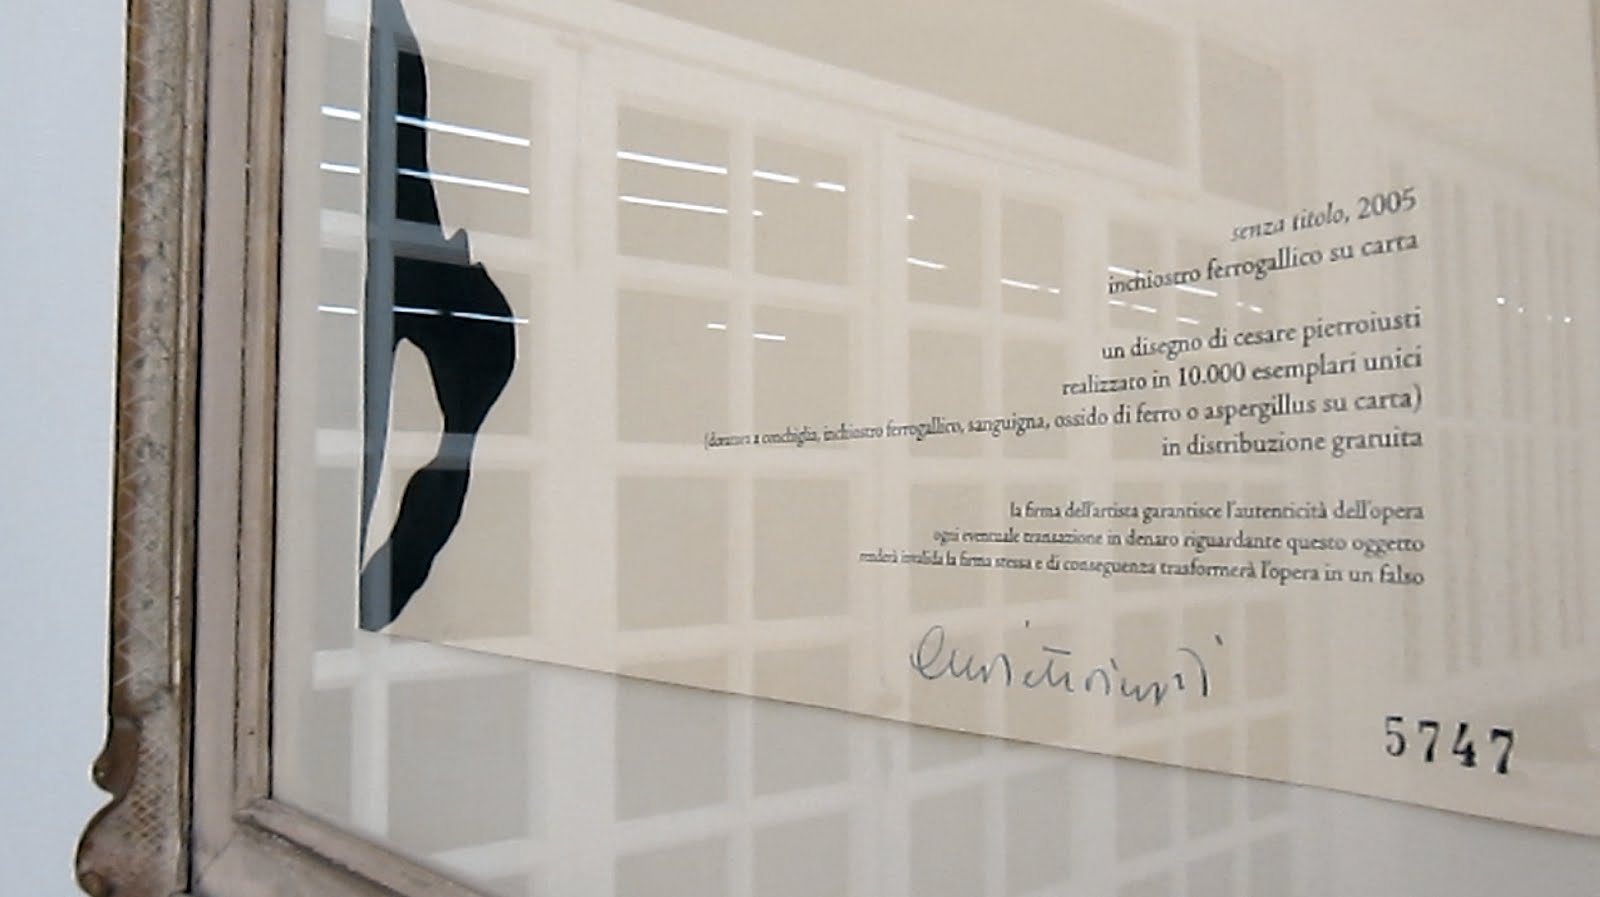 senza titolo, 2005
inchiostro ferrogallico su carta
un disegno di cesare pietroiusti
realizzato in 10.000 esemplari unici
(doratura a conchiglia, inchiostro ferrogallico, sanguigna, ossido di ferro o aspergillus su carta)
in distribuzione gratuita
la firma dell'artista garantisce l'autenticità dell'opera
ogni eventuale transazione in denaro riguardante questo oggetto
renderà invalida la firma stessa e di conseguenza trasformerà l'opera in un falso
5747